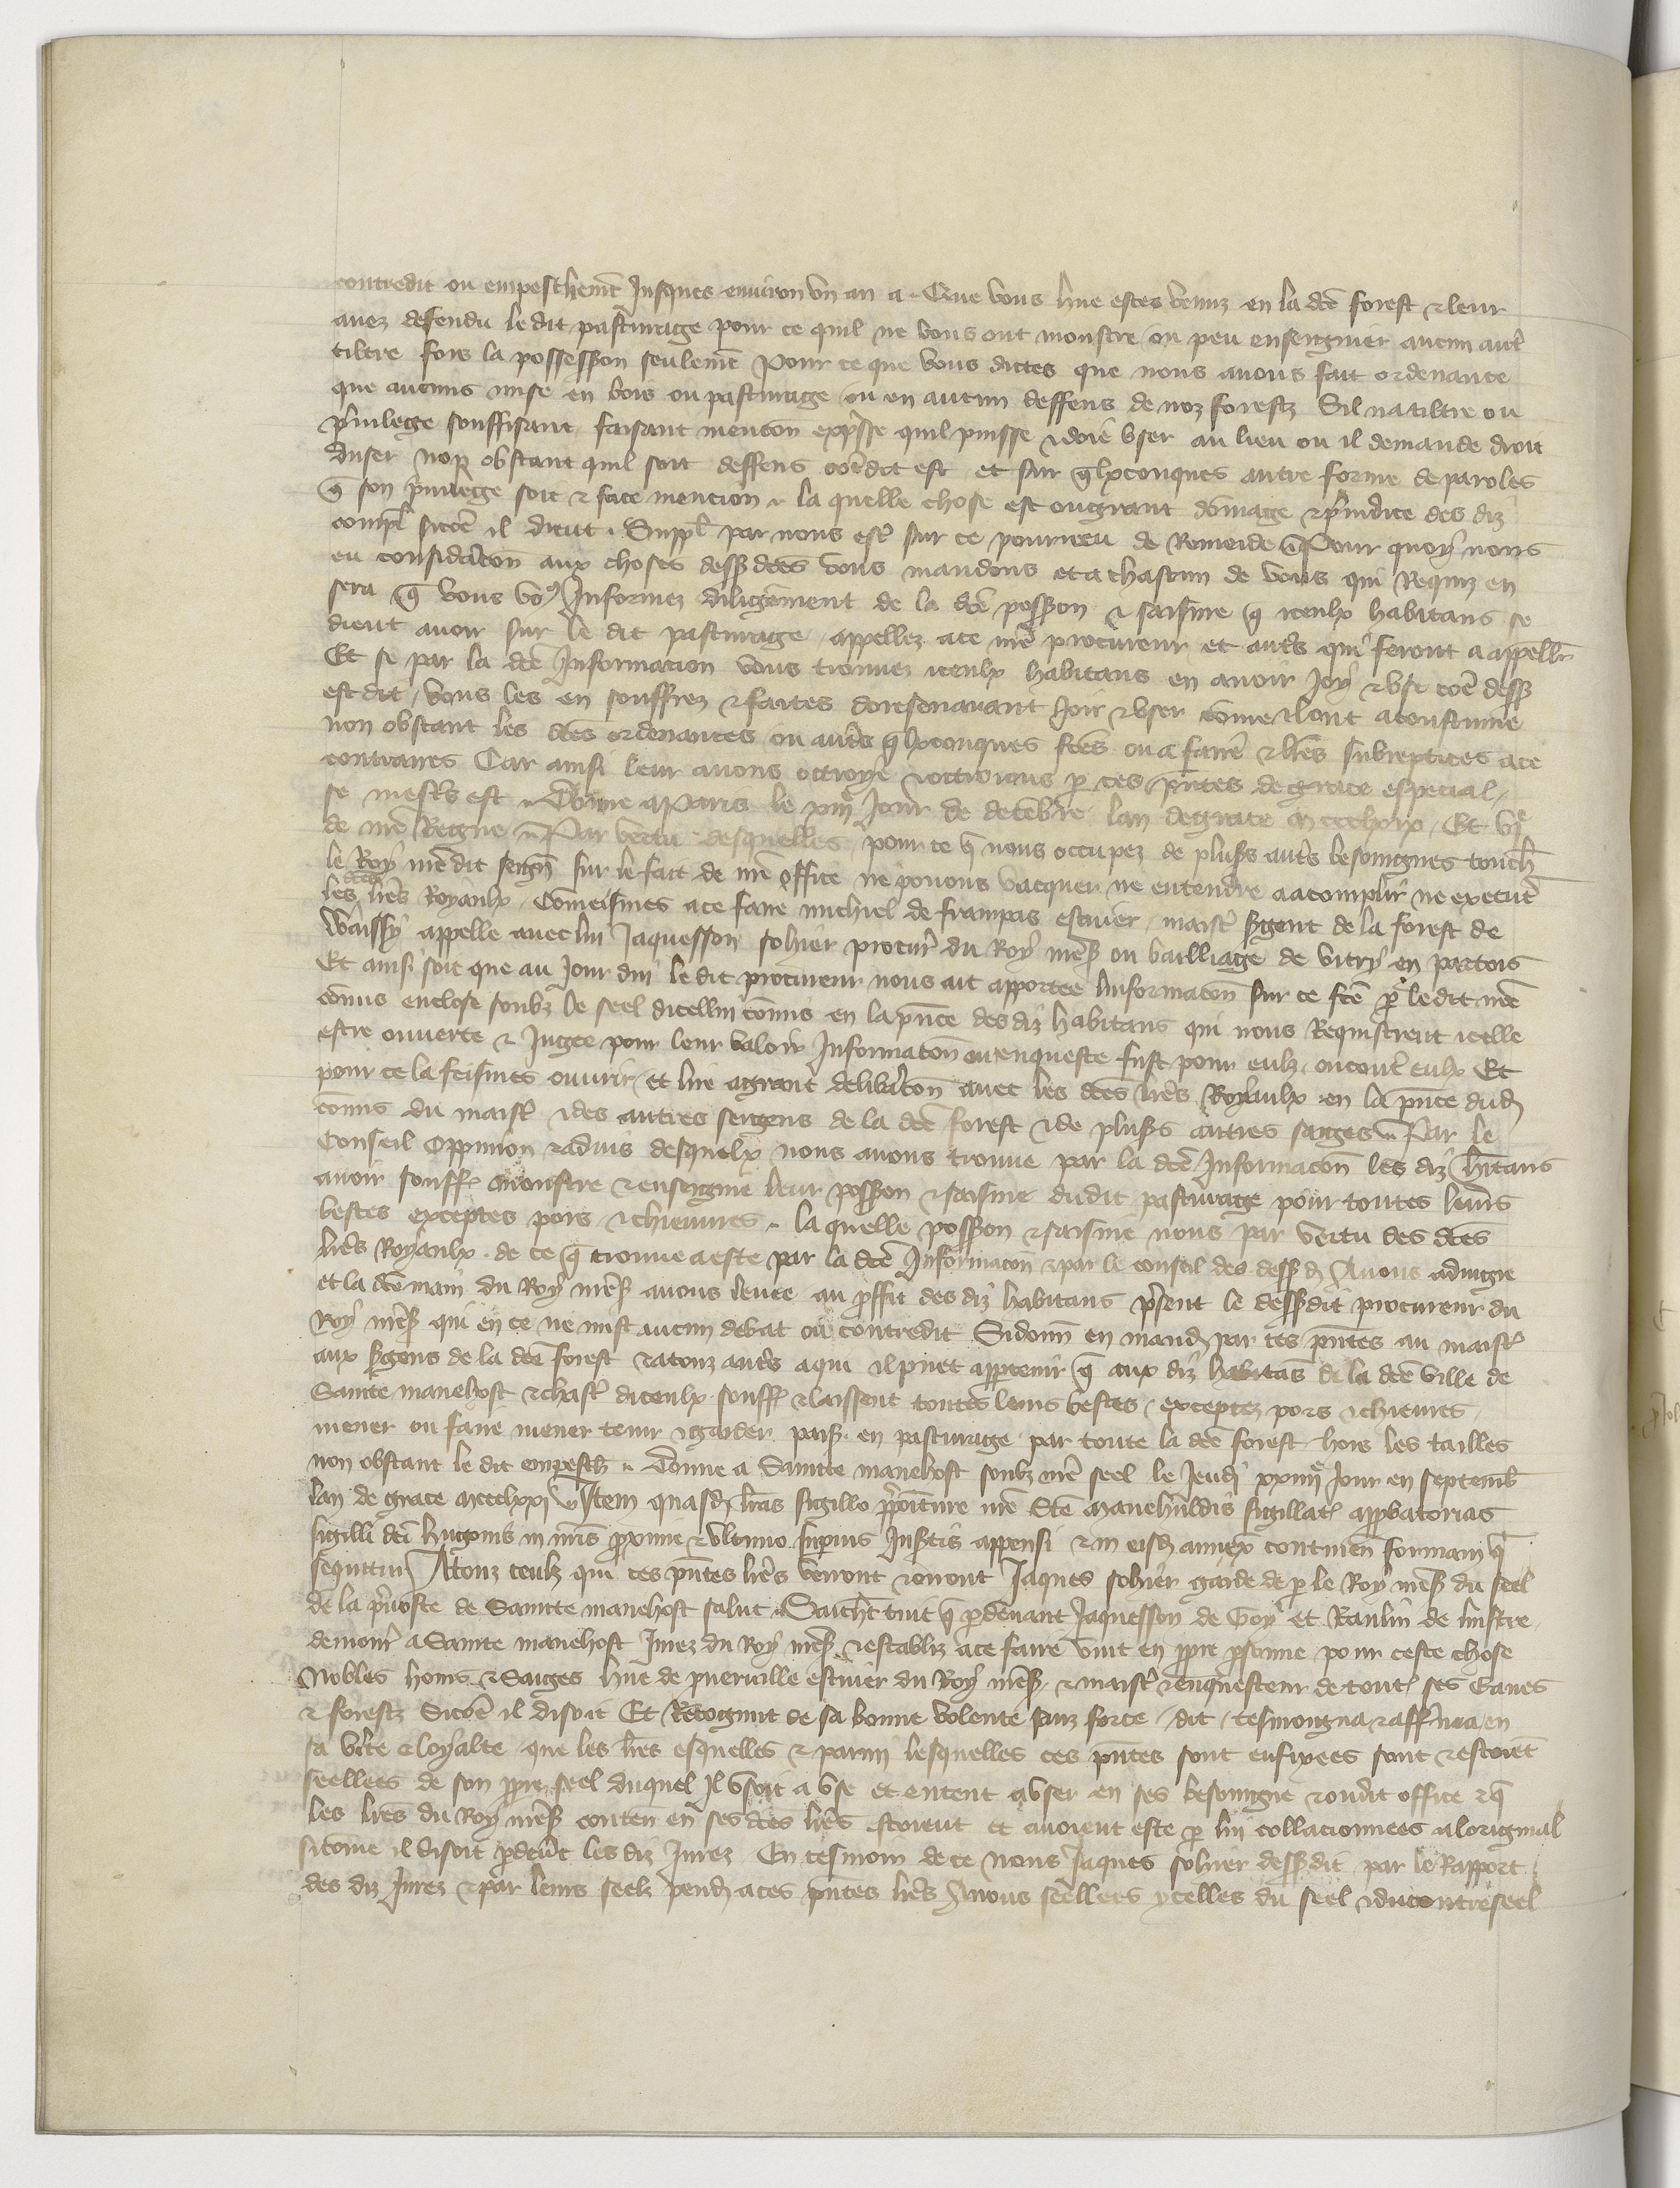 contredit ou empeschem̃t Jusques environ un an a. Que vous hue estes venuz en la dc̃e forest & leur
avez defendu le dit pasturage pour ce quil ne vous ont monstre ou peu enseignier aucun aut̃
tiltre fors la possession seulem̃t Pour ce que vous dictes que nous avons fait ordenance
que aucuns nuse en bois ou pasturage ou en aucun deffens de noz forestz Sil na tiltre ou
p̃vilege souffisant faisant mencon exp̃sse quil puisse & doie user au lieu ou il demande droit
duser non obstant quil soit deffens com̃ dit est et sur q̃lxconques autre forme de paroles
q̃ son p̃vilege soit & face mencion. la quelle chose est ou grant dom̃age & p̃iudice des diz
compl̃ sicom̃ il dient. Suppl̃ par nous est̃ sur ce pourveu de Remede Pour quoy nous
eu consideracon aux choses dess dc̃es vous mandons et a chascun de vous qui Requiz en
sera q̃ vous vo9 Informez diligem̃ent de la dc̃e poss̃on & saisine q̃ iceulx habitans se
dient avoir sur le dit pasturage appellez a ce nr̃e procureur et aut̃s qui seront a appeller
Et se par la dc̃e Informacion vous trouvez iceulx habitans en avoir Joy & use com̃ dess
est dit, vous les en souffrez & faites doresenavant Joir & user com̃e ilont acoustume
non obstant les dc̃es ordenances ou aut̃s q̃lxconques fc̃es ou a faire & lr̃es subreptices a ce
contraires Car ainsi leur avons ottroye & ottroions p̃ ces p̃ntes de grace especial,
se mest̃s est. Donne a Paris le Jour de decembre lan de grace m ccc lxix, Et viͤ
de nr̃e Regne Par vertu desquelles, pour ce q̃ nous occupez de plus̃s aut̃s besoingnes touch̃
le Roy nr̃e dit seign̄ sur le fait de nr̃e office ne povons vacquer ne entendre a acomplir ne execut̃
les dc̃es lr̃es Royaulx, Com̃eismes a ce faire michiel de frampas escuier, maist̃ s̃gent de la forest de
Waissy appelle avec lui Jaquesson sohier procur̃ du Roy nr̃es̃ ou bailliage de vitry en partois
Et ainsi soit que au Jour dui le dit procureur nous ait apportee linformacon sur ce fc̃e p̃ le dit nr̃e
com̃is enclose soubz le seel dicellui com̃is en la p̃nce des diz habitans qui nous Requistrent icelle
estre ouverte & Jugee pour leur valoir Informacon ou enqueste fust pour eulz, ou cont̃ eulx Et
pour ce la feismes ouvrir, et lire a grant delib̃acon avec les dc̃es lr̃es Royaulx en la p̃nce dud̃
com̃is du maist̃ & des autres sergens de la dc̃e forest & de plus̃s autres sarges Par le
Conseil Oppinion & advis desquelx nous avons trouve par la dc̃e Informacon les diz h̃itans
avoir souff̃ monstre & enseignie leur poss̃on & saisine dudit pasturage pour toutes leurs
bestes exceptes pors & chievres, la quelle poss̃on & saisine nous par vertu des dc̃es
lr̃es Royaulx. de ce q̃ trouve a este par la dc̃e Informacon & par le conseil des dess d̃ Avons adiugie
et la dc̃e main du Roy nr̃es̃ avons levee au p̃ffit des diz habitans p̃sent le dess̃dit procureur du
Roy nr̃es̃ qui en ce ne mist aucun debat ou contredit Sidonn̄ en mand̃ par ces p̃ntes au maist̃
aux s̃gens de la dc̃e forest & a touz aut̃s a qui il puet appartenir q̃ aux diz habitãs de la dc̃e ville de
Sainte manehost & chast̃ diceulx, souff̃ & laissent toutes leurs bestes, exceptez pors & chievres,
mener ou faire mener tenir & garder. pais̃. en pasturage par toute la dc̃e forest hors les tailles
non obstant le dit empesch̃. Donne a Saincte manehost soubz nr̃e seel le Jeudi Jour en septemb̃
lan de grace m ccc lxxi Item quasd̃ lr̃as sigillo p̃positure nr̃e Sc̃e Manehildis sigillat̃ app̃batorias
sigilli dc̃i hugonis in lr̃is p̃xime & ultimo sup̃ius Ins̃tis appensi & in eisd̃ annex̃ continen̄ formam q̃
sequitur A touz ceulz qui ces p̃ntes lr̃es verront & orront Jaques sohier garde de p̃ le Roy nr̃es̃ du seel
de la p̃voste de Saincte manehost salut. Saich̃t tuit q̃ p̃devant Jaquesson de Goy et Raulin de
demour̃ a Sainte manehost Jurez du Roy nr̃es̃ & establiz a ce faire vint en pp̃re p̃sonne pour ceste chose
Nobles homs & Saiges hue de puerville escuier du Roy nr̃es̃ & maist̃ & enquesteur de tout̃ ses Eaues
& forestz Sicom̃ il disoit Et Recognut de sa bonne volente sanz force, dit, tesmongna & afferma en
sa verite & loyalte, que les lr̃es esquelles & parmi lesquelles ces p̃ntes sont enfixees sont & estoiẽt
seellees de son pp̃re seel duquel Il usoit a use et entent a user en ses besoingne & ou dit office & q̃
les lr̃es du Roy nr̃es̃ conten̄ en ses dc̃es lr̃es, estoient et avoient este p̃ lui collacionnees a loriginal
sicome il disoit p̃devãt les diz Jurez En tesmoin de ce Nous Jaques sohier dess̃dit par le Rapport
des diz Jurez & par leurs seelz pend̃ a ces p̃ntes lr̃es Avons seellees ycelles du seel & du contreseel